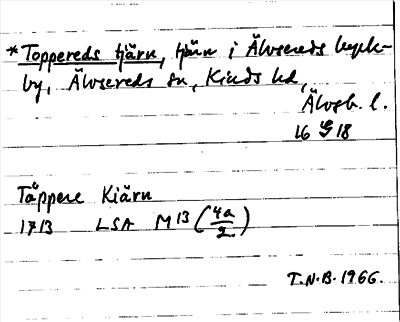 *Toppereds tjärn, tjärn i Älvsereds kyrk-
by, Älvsereds sn, Kinds hd,
Älvsb. l.
16 G 18
Täppere Kiärn
1713 LSA M13 (4a/2)
T.N.B. 1966.